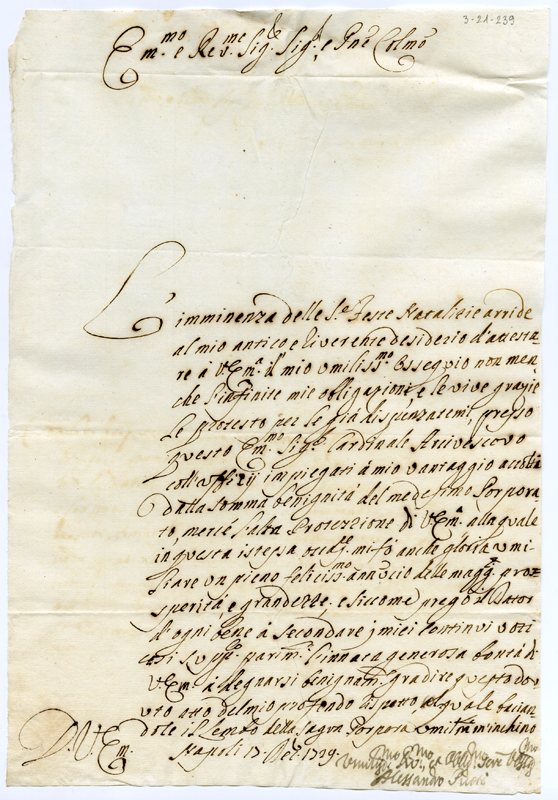 3-21-239
Em.mo e Rev.me Sig.r Sig.r, e Pne Colmo
L'imminenza delle S.e Feste Natalizie arride
al mio antico e riverente desiderio d'attesta-
re á V. Em.a il mio umiliss.mo Ossequio non men
che l'infinite mie obligazioni, e le vive grazie
le protesto per le già dispenzatemi, presso
questo Em.mo Sig.r Cardinale Arcivescovo
coll'uffizij impiegati à mio vantaggio accolti
dalla somma benignità del medesimo Porpora
to, mercé l'alta Protezzione di V. Em.a alla quale
in questa istessa occ.ne mi fò anche gloria umi
liare un pieno feliciss.mo annuncio delle magg.ri pros-
sperità, e grandezze, e siccome prego il Dator
d'ogni bene à secondare i miei continui voti
così supp.co parim.te l'innata generosa bontà di
V. Em.a à degnarsi benignam.te gradire questo do-
vuto atto del mio profondo rispetto al quale bacian
dole il Lembo della Sagra Porpora umilm.te m'inchino
D. V. Em.
Napoli 17 1739.
Alessandro